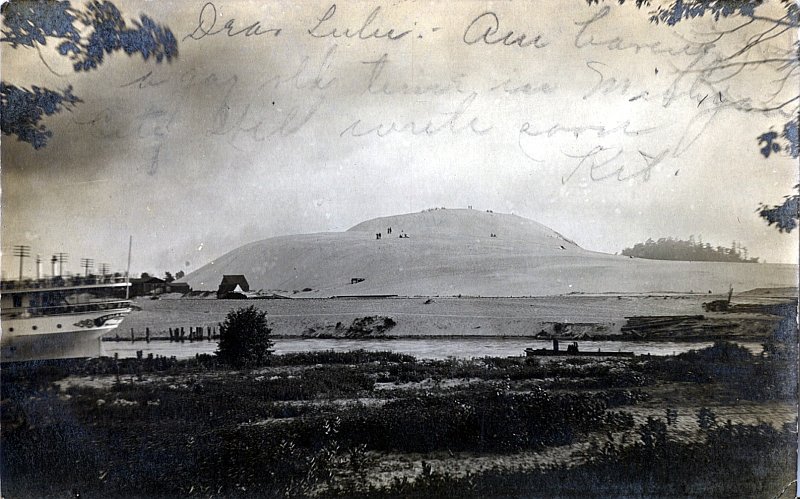 Dear Lulu:- Am having
a gay old time in Michigan
City Will write soon
Kit.